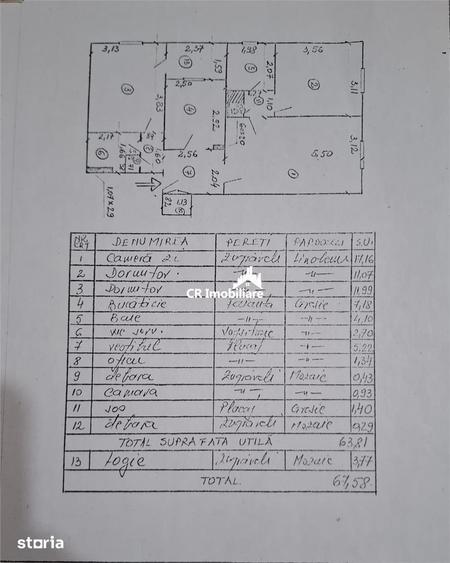 3,13
2,37
1,98
3,56
13
1,59
5
2,07
2
3,11
3
3,83
2,50
4
2,52
1,10
2,17
6
1,66
1,60
2,56
7
2,04
60x20
5,50
1
3,12
1,04 x 2,9
82
1,13
(8)
NR. CRT DENUMIREA PERETI PARDOSELI S.U.
1 Camera zi Zugraveli Linoleum 17,16
2 Dormitor. -"- -"- 11,07
3 Dormitor -"- -"- 11,99
4 Bucătărie Faianta Gresie 7,18
5 Baie -"- -"- 4,10
6 wc serv. -"- 2,70
7 vestibul Placaj -"- 5,22
8 oficiu -"- -"- 1,34
9 debara Zugraveli Mozaic 0,43
10 camara -"- -"- 0,93
11 Placaj Gresie 1,40
12 debara Zugraveli Mozaic 0,29
TOTAL SUPRAFATA UTILĂ 63,81
13 Logie Zugraveli Mozaic 3,77
TOTAL 67,58
CR Imobiliare
storia